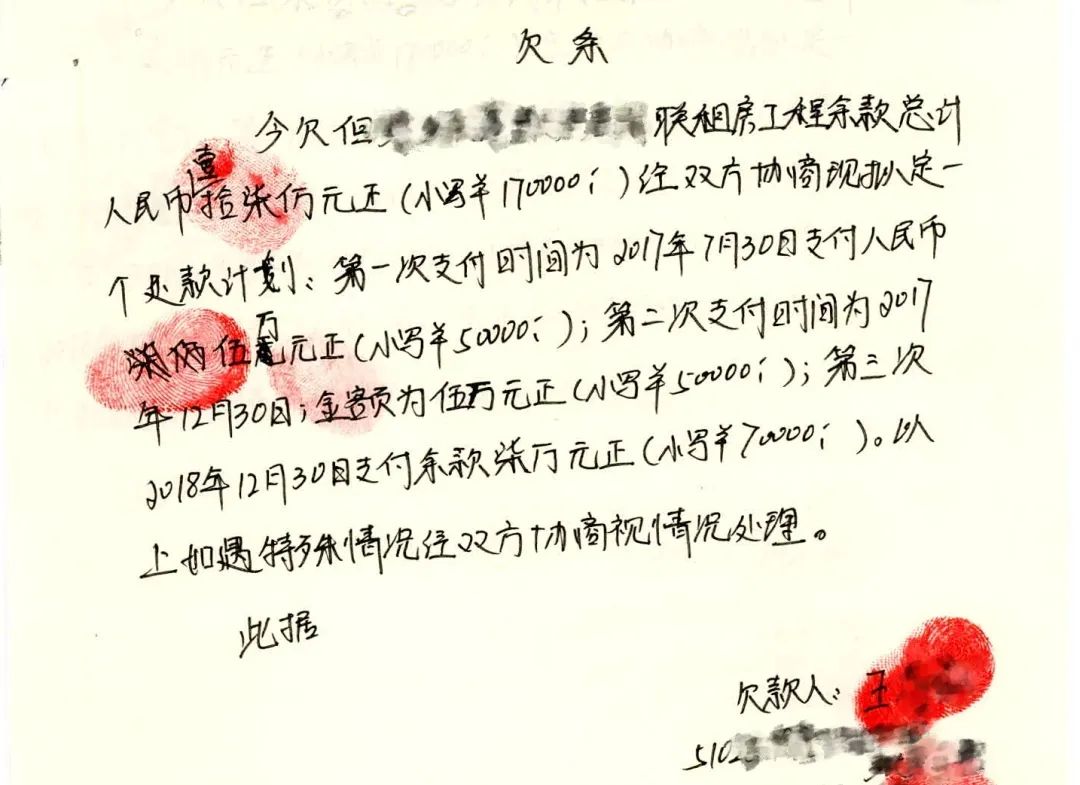 欠条
今欠但 联祖房工程余款总计
人民币壹拾柒仟元正(小写羊170000;)经双方协商现拟定一
个还款计划:第一次支付时间为2017年7月30日支付人民币
伍万元正(小写羊50000;);第二次支付时间为2017
年12月30日;金额为伍万元正(小写羊50000;);第三次
2018年12月30日支付余款柒万元正(小写羊70000;)。以
上如遇特殊情况经双方协商视情况处理。
此据
欠款人:王
5102